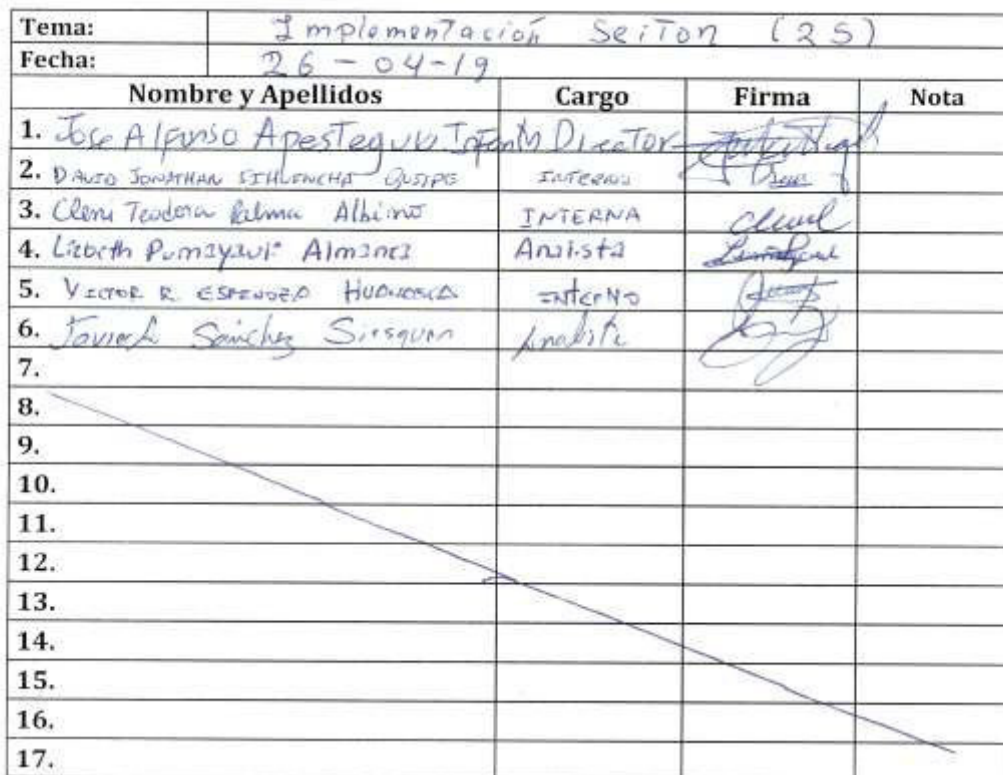 Tema: Implementación Seiton (2S)
Fecha: 26-04-19
Nombre y Apellidos Cargo Firma Nota
1. Jose Alfonso Apestegui Director
2. DAVID JONATHAN QUISPE INTERNO
3. Teodora Palma Albino INTERNA
4. Lizbeth Pumayauri Almanza Analista
5. VICTOR R. ESPINOZA INTERNO
6. Sánchez Analista
7.
8.
9.
10.
11.
12.
13.
14.
15.
16.
17.